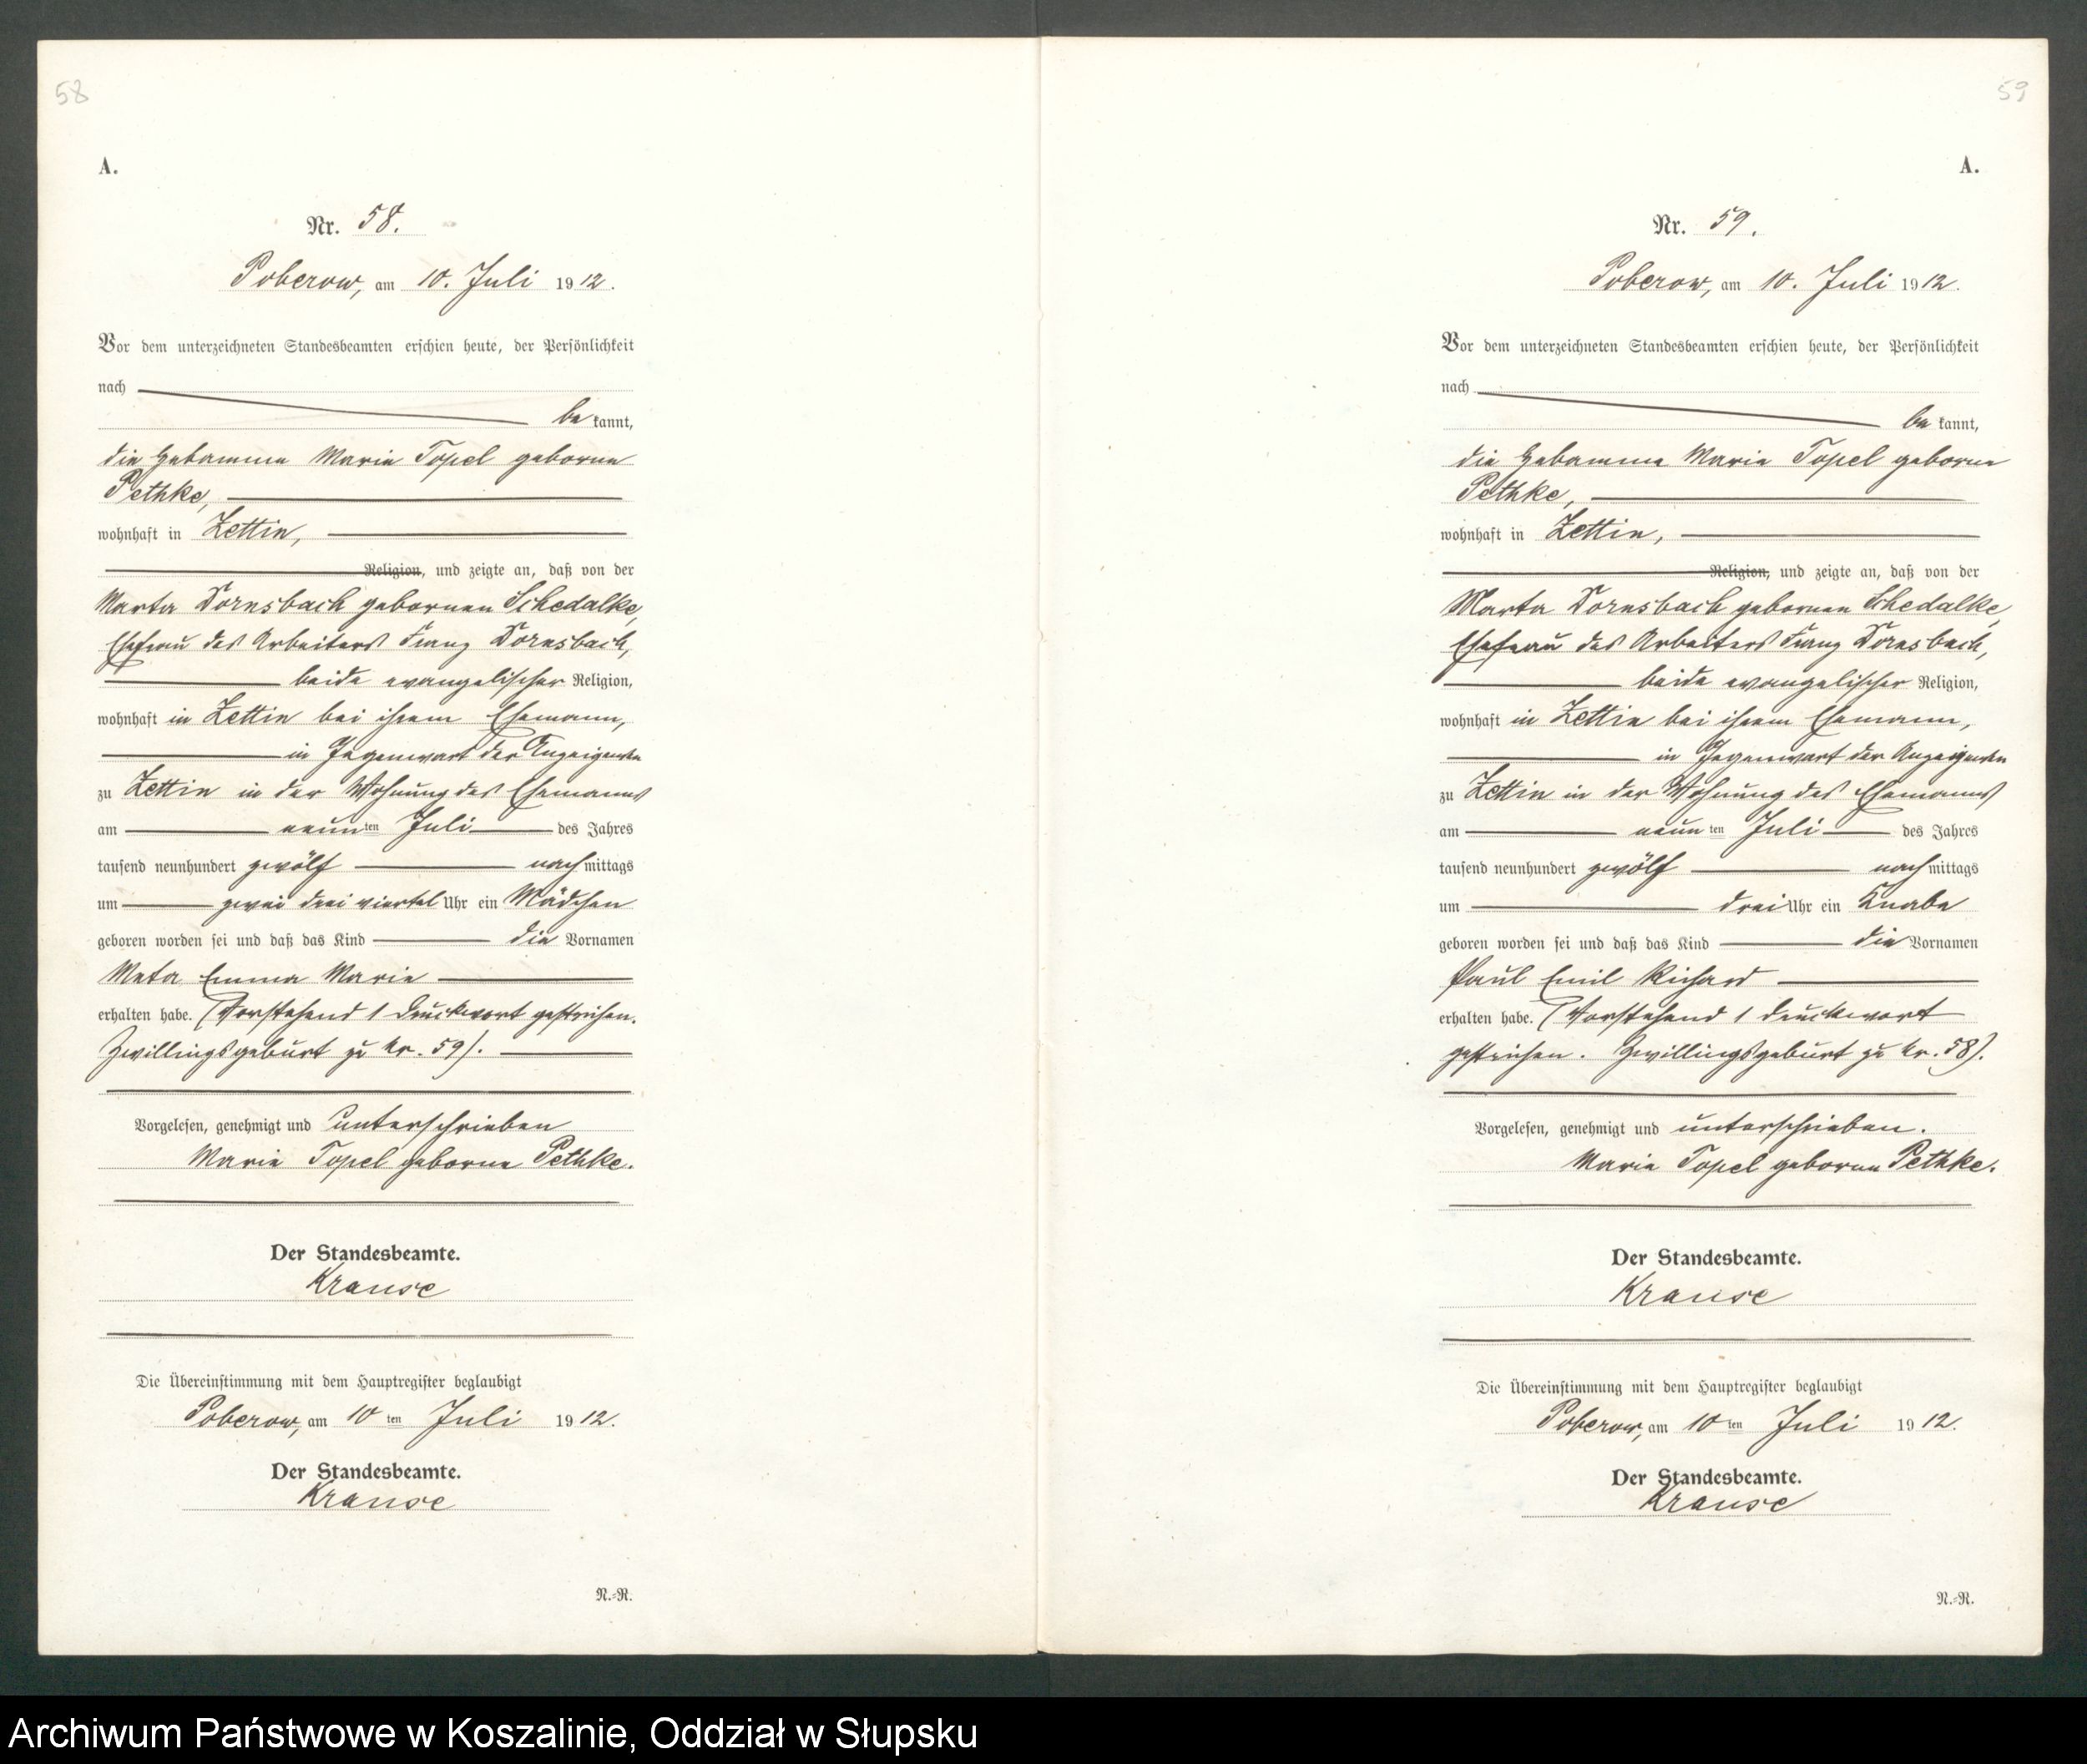 58
A.
Nr. 58.
Poberow, am 10. Juli 1912.
Vor dem unterzeichneten Standesbeamten erschien heute, der Persönlichkeit
nach
be kannt,
die Hebamme Marie Topel geborne
Pethke,
wohnhaft in Zettin,
Religion, und zeigte an, daß von der
Marta Dornsbach gebornen Schedalke,
Ehefrau des Arbeiters Franz Dornsbach,
beide evangelischer Religion,
wohnhaft in Zettin bei ihrem Ehemann,
in Gegenwart der Anzeigenden
zu Zettin in der Wohnung des Ehemannes
am neun ten Juli des Jahres
tausend neunhundert zwölf nach mittags
um zwei drei viertel Uhr ein Mädchen
geboren worden sei und daß das Kind die Vornamen
Meta Emma Marie
erhalten habe. (Vorstehend 1 Druckwort gestrichen.
Zwillingsgeburt zu Nr. 59).
Vorgelesen, genehmigt und unterschrieben
Marie Topel geborne Pethke.
Der Standesbeamte.
Krause
Die Übereinstimmung mit dem Hauptregister beglaubigt
Poberow, am 10 ten Juli 1912.
Der Standesbeamte.
Krause
N.-R.
59
A.
Nr. 59.
Poberow, am 10. Juli 1912.
Vor dem unterzeichneten Standesbeamten erschien heute, der Persönlichkeit
nach
be kannt,
die Hebamme Marie Topel geborne
Pethke,
wohnhaft in Zettin,
Religion, und zeigte an, daß von der
Marta Dornsbach gebornen Schedalke,
Ehefrau des Arbeiters Franz Dornsbach,
beide evangelischer Religion,
wohnhaft in Zettin bei ihrem Ehemann,
in Gegenwart der Anzeigenden
zu Zettin in der Wohnung des Ehemannes
am neun ten Juli des Jahres
tausend neunhundert zwölf nach mittags
um drei Uhr ein Knabe
geboren worden sei und daß das Kind die Vornamen
Paul Emil Richard
erhalten habe. (Vorstehend 1 Druckwort
gestrichen. Zwillingsgeburt zu Nr. 58).
Vorgelesen, genehmigt und unterschrieben.
Marie Topel geborne Pethke.
Der Standesbeamte.
Krause
Die Übereinstimmung mit dem Hauptregister beglaubigt
Poberow, am 10 ten Juli 1912.
Der Standesbeamte.
Krause
N.-R.
Archiwum Państwowe w Koszalinie, Oddział w Słupsku